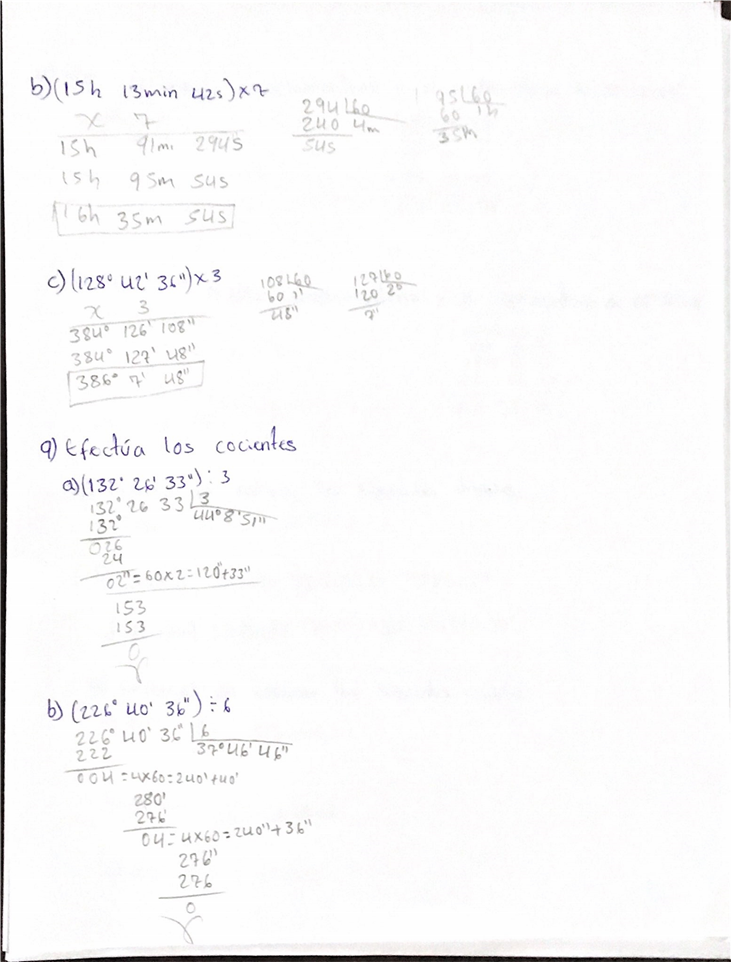 b) (15h 13min 42s) x 7
x 7
15h 91m 294s
15h 95m 54s
16h 35m 54s
294 60
240 4m
54s
95 60
60 1h
35m
c) (128° 42' 36") x 3
x 3
384° 126' 108"
384° 127' 48"
386° 7' 48"
108 60
60 1"
48"
127 60
120 2°
7'
9) Efectúa los cocientes
a) (132° 26' 33") : 3
132° 26 33 3
132° 44° 8' 51"
026
24
02" = 60 x 2 = 120" + 33"
153
153
0
b) (226° 40' 36") ÷ 6
226° 40' 36" 6
222 37° 46' 46"
004 = 4 x 60 = 240' + 40'
280'
276'
04 = 4 x 60 = 240" + 36"
276"
276
0